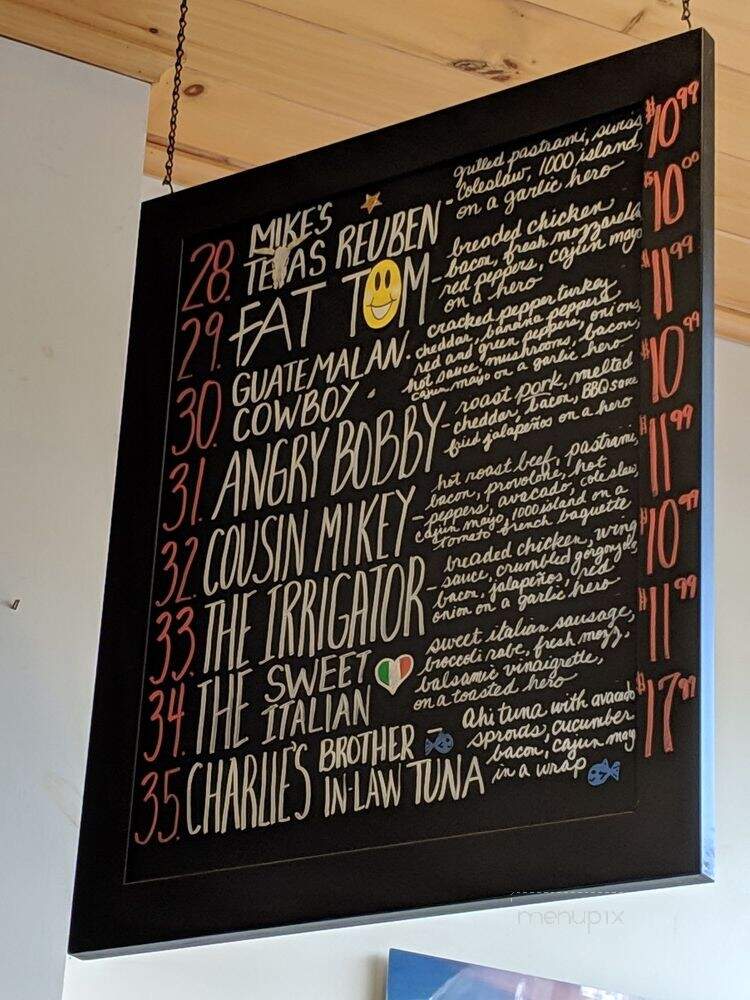 28. MIKE'S TEXAS REUBEN - grilled pastrami, swiss, $10.99
coleslaw, 1000 island,
on a garlic hero
29. FAT TOM - breaded chicken $10.00
bacon, fresh mozzarella
red peppers, cajun mayo
on a hero
30. GUATEMALAN COWBOY - cracked pepper turkey $11.99
cheddar, banana peppers,
red and green peppers, onions,
hot sauce, mushrooms, bacon,
cajun mayo on a garlic hero
31. ANGRY BOBBY - roast pork, melted $10.99
cheddar, bacon, BBQ sauce
fried jalapeños on a hero
32. COUSIN MIKEY - hot roast beef, pastrami, $11.99
bacon, provolone, hot
peppers, avacado, cole slaw
cajun mayo, 1000 island on a
tomato french baguette
33. THE IRRIGATOR - breaded chicken, wing $10.99
sauce, crumbled gorgonzola
bacon, jalapeños, red
onion on a garlic hero
34. THE SWEET ITALIAN sweet italian sausage, $11.99
broccoli rabe, fresh mozz,
balsamic vinaigrette,
on a toasted hero
35. CHARLIE'S BROTHER IN-LAW TUNA - Ahi tuna with avacado $17.99
sprouts, cucumber
bacon, cajun may
in a wrap
menupix